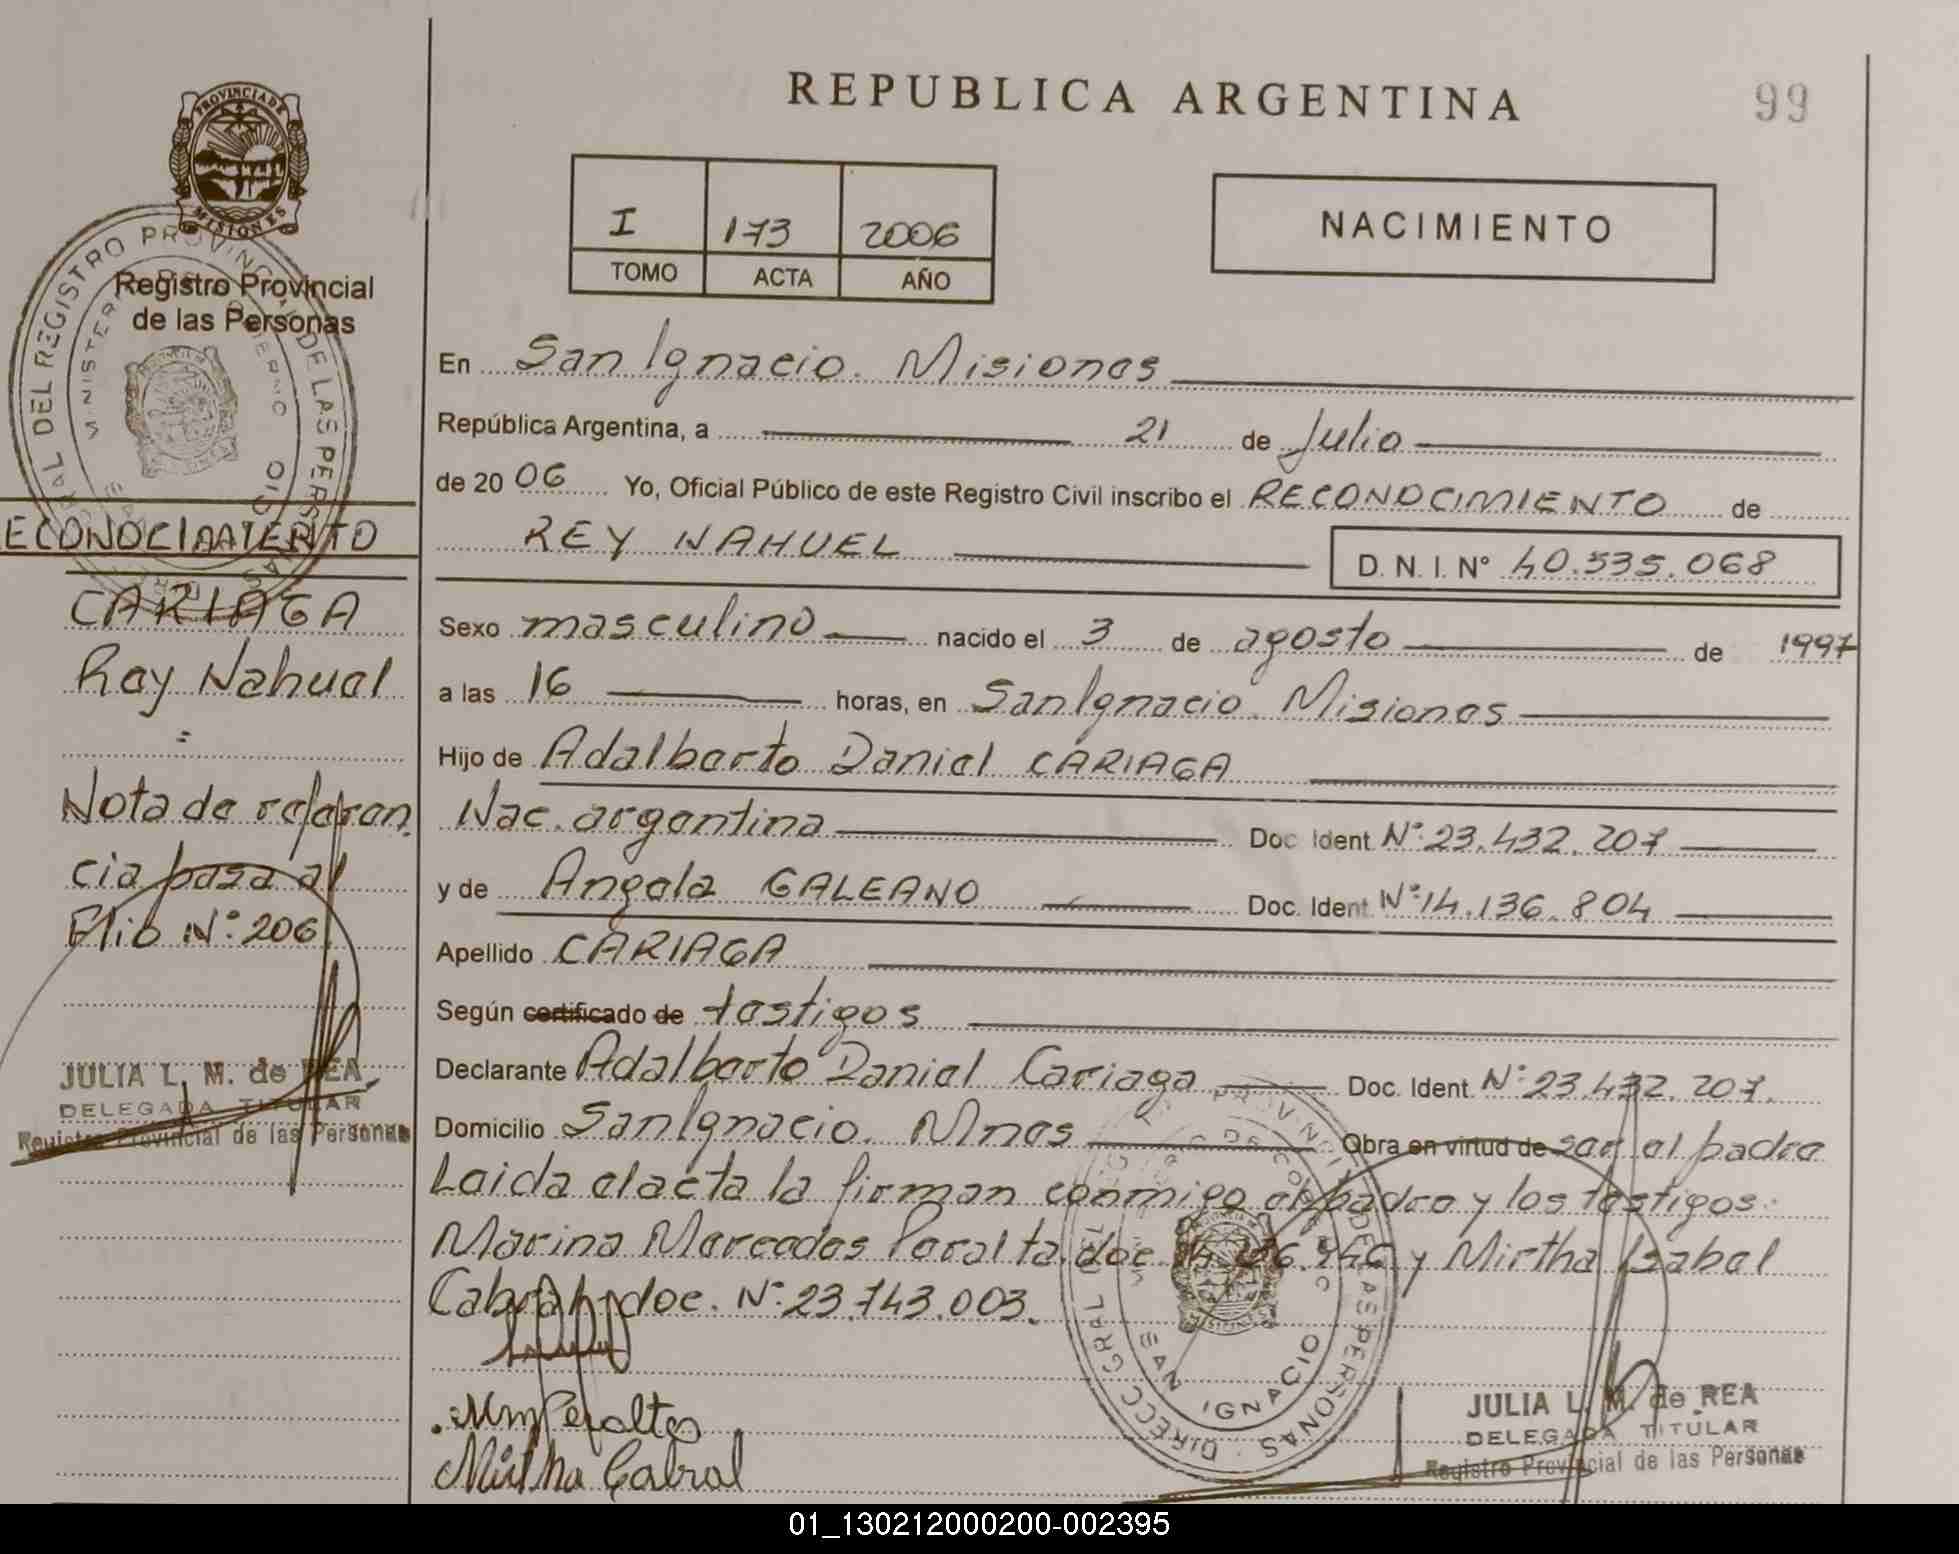 REPUBLICA ARGENTINA
99
PROVINCIA DE
MISIONES
Registro Provincial
de las Personas
I 173 2006
TOMO ACTA AÑO
NACIMIENTO
En San Ignacio. Misiones
República Argentina, a 21 de Julio
de 2006 Yo, Oficial Público de este Registro Civil inscribo el RECONOCIMIENTO de
REY NAHUEL D. N. I. N° 40.535.068
Sexo masculino nacido el 3 de agosto de 1997
a las 16 horas, en San Ignacio. Misiones
Hijo de Adalberto Daniel CARIAGA
Nac. argentina Doc Ident. N°: 23.432.207
y de Angela GALEANO Doc. Ident N°: 14.136.804
Apellido CARIAGA
Según certificado de testigos
Declarante Adalberto Daniel Cariaga Doc. Ident. N°: 23.432.207.
Domicilio San Ignacio. Mnes Obra en virtud de ser el padre
Leida el acta la firman conmigo el padre y los testigos:
Marina Mercedes Peralta. doc. y Mirtha Isabel
Cabral doc. N°: 23.743.003.
MmPeralta
Mirtha Cabral
JULIA L. M. de REA
DELEGADA TITULAR
Registro Provincial de las Personas
DIRECC GRAL DE LAS PERSONAS
SAN IGNACIO
ECONOCIMIENTO
CARIAGA
Rey Nahuel
=
Nota de referen
cia pasa al
Flio N°: 206
JULIA L. M. de REA
DELEGADA TITULAR
Registro Provincial de las Personas
DEL REGISTRO PROVINCIAL DE LAS PERSONAS
MINISTERIO DE GOBIERNO
01_130212000200-002395